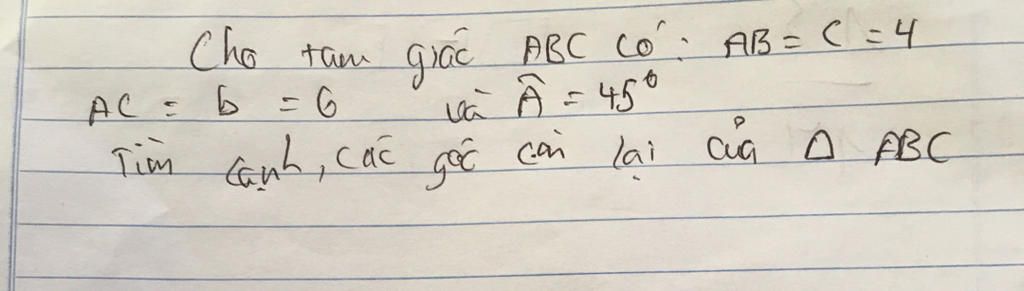 Cho tam giác ABC có: AB = c = 4
AC = b = 6 và Â = 45°
Tìm cạnh, các góc còn lại của Δ ABC